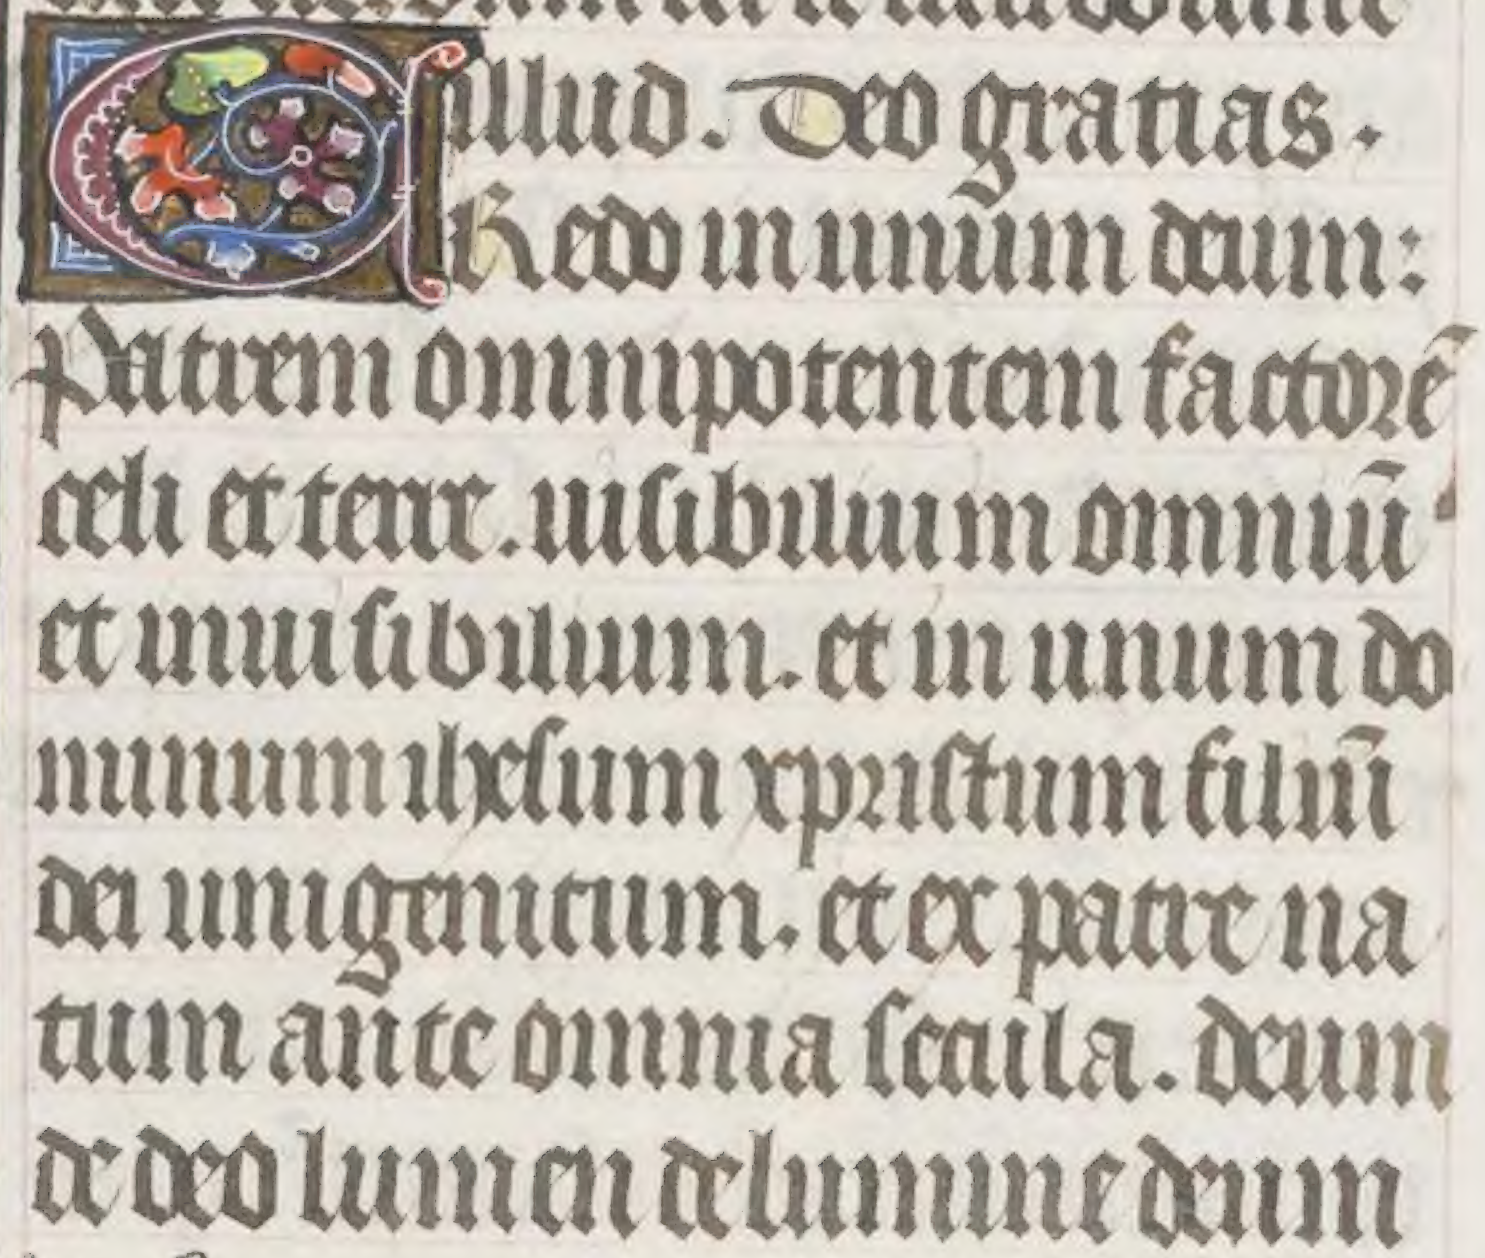 illud. Deo gratias.
CRedo in unum deum:
Patrem omnipotentem factorē
celi et terre. uisibilium omniū
et inuisibilium. et in unum do
minum ihesum xpristum filiū
dei unigenitum. et ex patre na
tum ante omnia secula. deum
de deo lumen de lumine deum